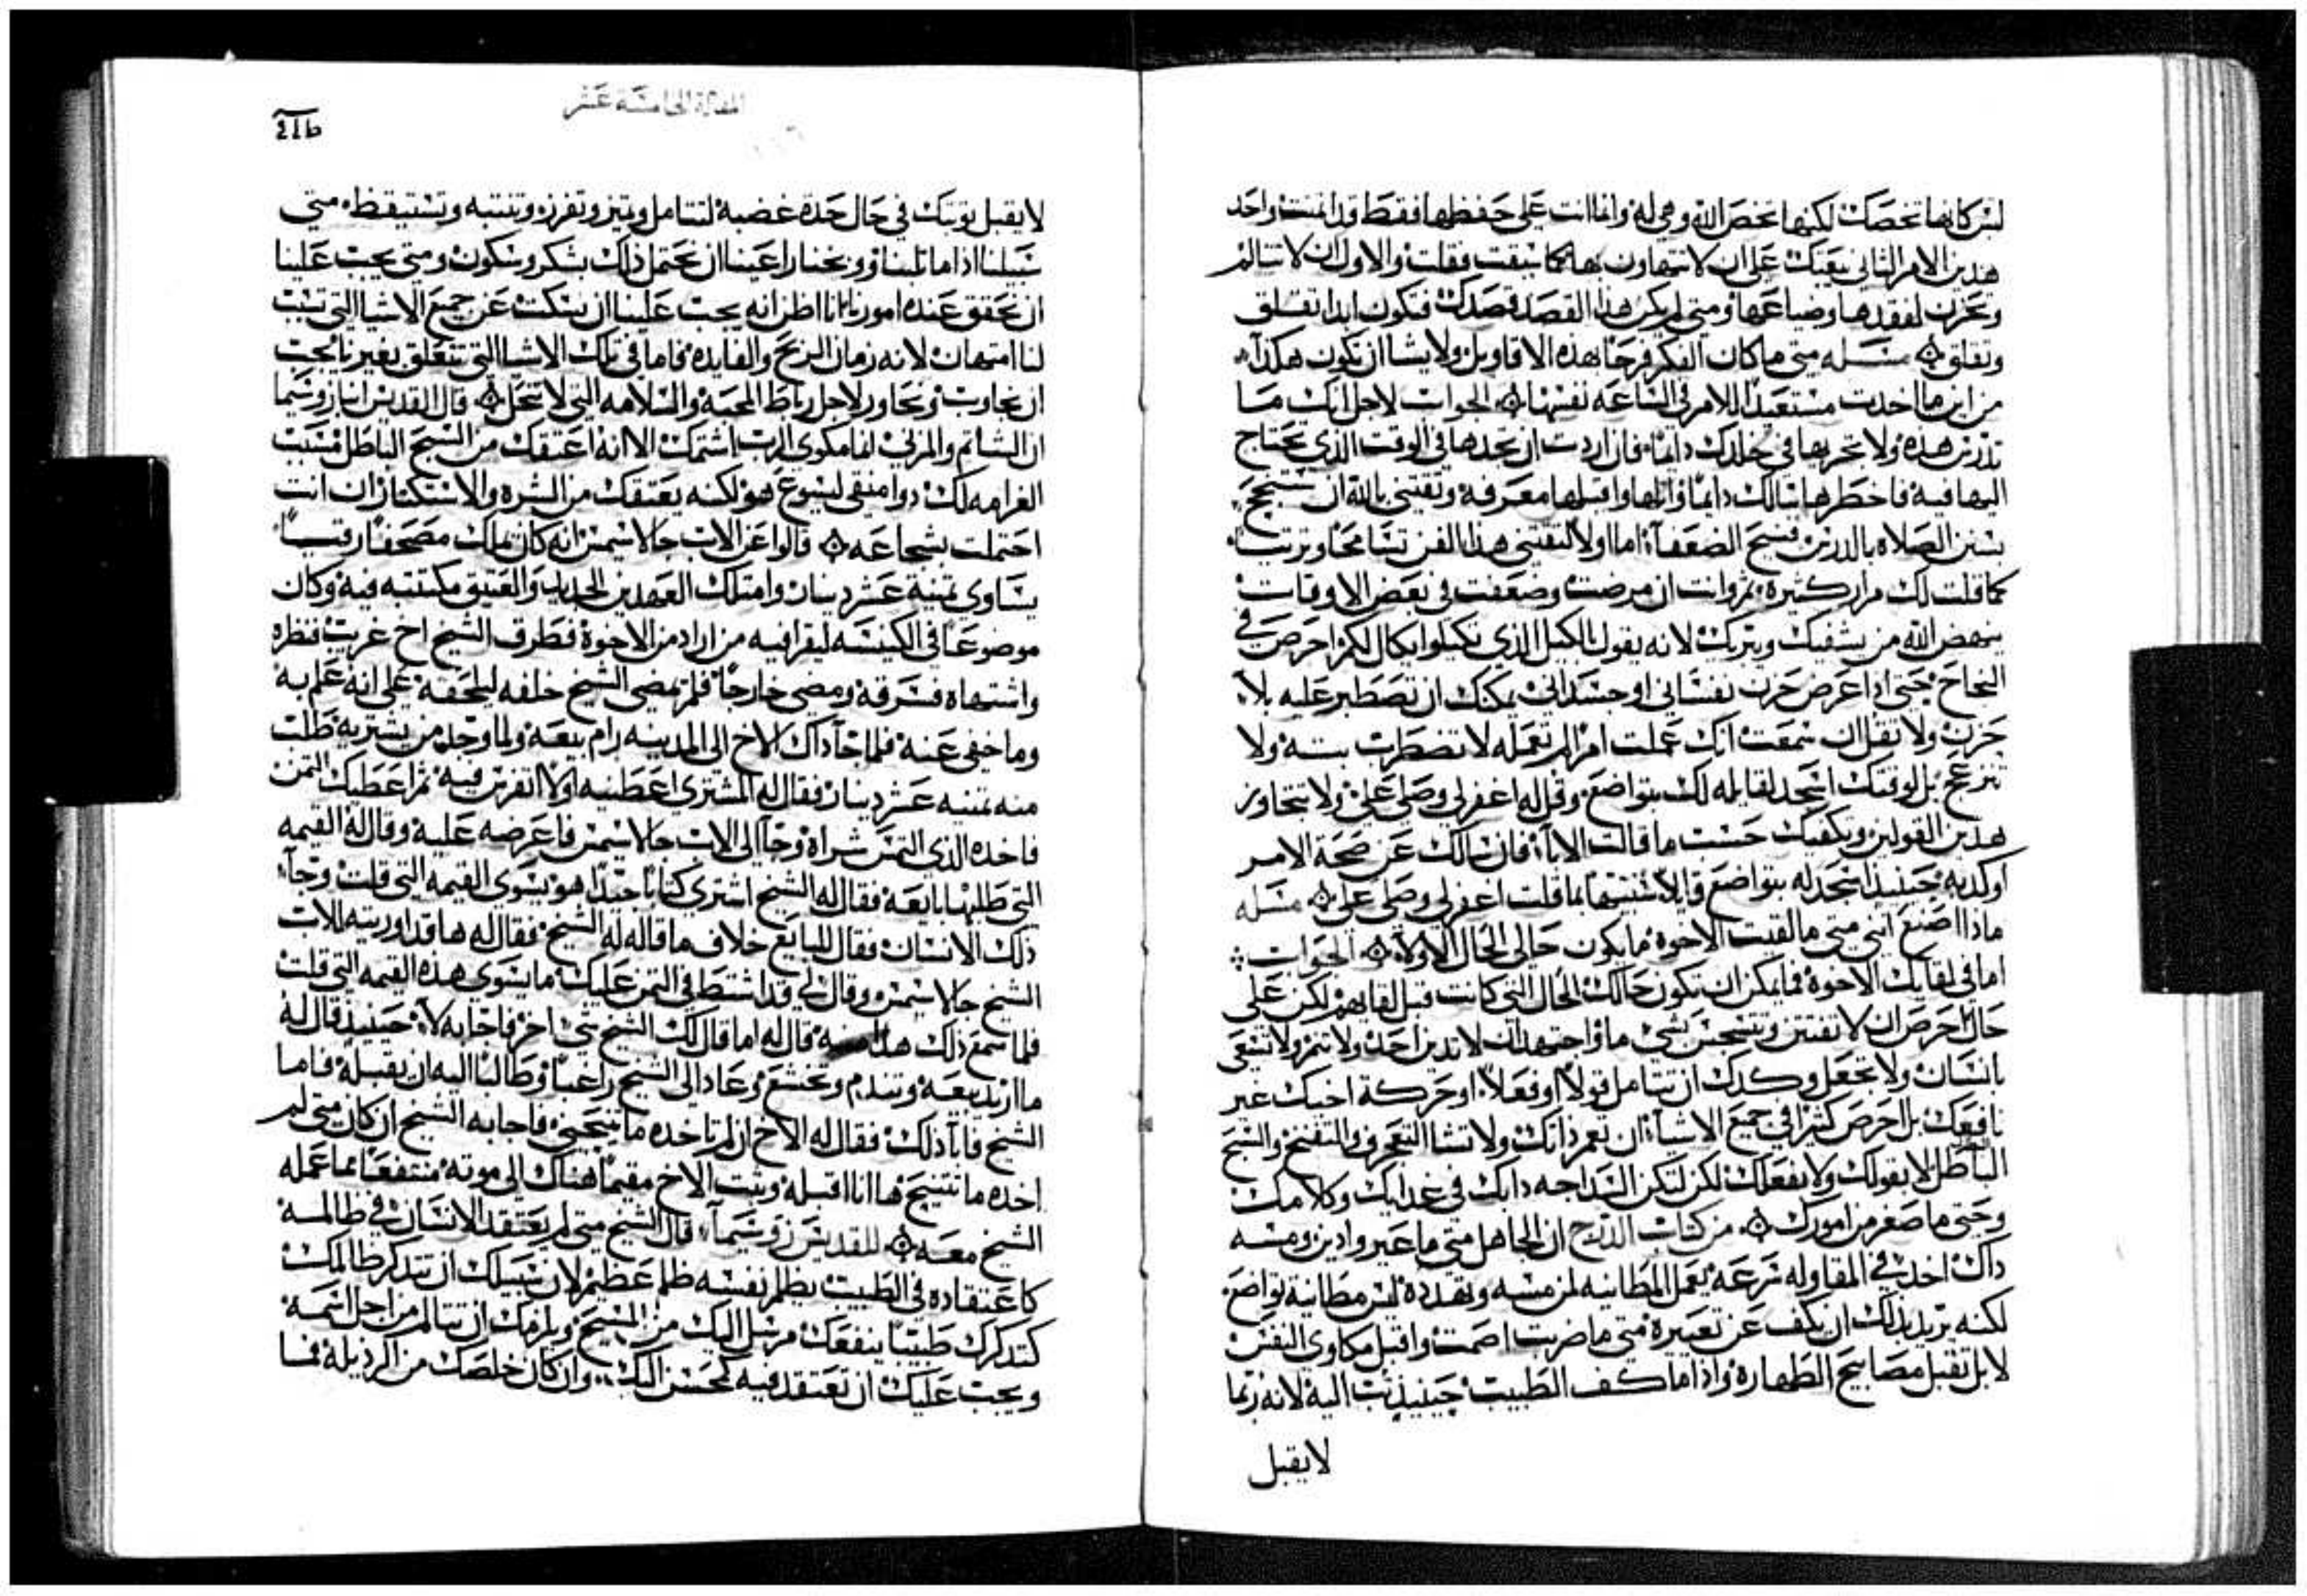 لىس كانها تخصك لكنها تخص الله وهي له وانما انت على حفظها فقط قد ائتمنت واحد
هذين الامر الثاني يعينك على ان لا تتهاون بها كما سبقت فقلت والاول ان لا تتالم
وتحزن لفقدها وضياعها ومتى لم يكن هذا القصد قصدك فتكون ابدا تقلق
وتقلق مسله متى ما كان الفكر فرحا بهذه الاقاويل ولا يشا ان يكون هكذا
من اين ما اخدت مستعبدا للامر في الساعه نفسها الجواب لاجل انك ما
تدرس هذه ولا تجريها في خلدك دايما فان اردت ان تجدها في الوقت الذي تحتاج
اليها فيه فاخطرها ببالك دايما واتلها واقبلها بمعرفه وتقتني بالله ان تنجح
كما قلت لك مرار كثيره ثم وانت ان مرضت وضعفت في بعض الاوقات
ينهض الله من يشفيك ويبريك لانه يقول بالكيل الذي تكيلوا يكال لكم احرص في
النجاح حتى اذا عرض حزن نفساني او جسداني يمكنك ان تصطبر عليه بلا
حزن ولا تقل ان سمعت انك عملت امرا لم تعمله لا تضطرب بته ولا
تنزعج بل لوقتك اسجد لقابله لك بتواضع وقل له اغفر لي وصلي علي ولا تتجاوز
هذين القولين ويكفيك حسب ما قالت الابا فان سالك عن صحة الامر
اوكدبه حينيذ اسجد له بتواضع قايلا بما قلت اغفر لي وصلي علي مسله
ماذا اصنع انني متى ما لقيت الاخوة ما يكون حالي الحال الاولة الجواب
اما في لقايك الاخوة فما يمكن ان تكون حالك الحال التي كانت قبل لقايهم لكن على
حال احرص ان لا تفتتن بشي ما واجتهد ان لا تدين احد ولا تنم ولا تسعى
بانسان ولا تجعل وكدك ان تتامل قولا او فعلا او حركة اخيك غير
نافعك بل احرص كثيرا في جميع الاشيا ان تعمر ذاتك ولا تشا التعجرف والتفتيح والسبح
الباطل لا بقولك ولا بفعلك لكن لتكن السداجه دابك في غدايك وكلامك
وحتى ما صغر من امورك من كتاب الدرج ان الجاهل متى ما عير وادين ومسه
داك اخد في المقاوله بسرعه يعمل المطانيه لمن مسه وتهدده ليس مطانية تواضع
لكنه يريد بذلك ان يكف عن تعييره متى ما ضربت اصمت واقبل مكاوي النفس
لا بل تقبل مصابيح الطهاره واذا ما كف الطبيب حينيذ تب اليه لانه ربما
لا يقبل
المقالة الخامسة عشر
لا يقبل توبتك في حال حدة غضبة لنتامل ونميز ونفرز وننتبه ونستيقظ متى
سبيلنا اذا ما تلبنا ووبخنا راعينا ان نحتمل ذاك بشكر وسكون ومتى يجب علينا
ان نحقق عنده امورنا انا اظن انه يجب علينا ان نسكت عن جميع الاشيا التي تسبب
لنا امتهان لانه زمان الربح والفايده فاما في تلك الاشيا التي تتعلق بغيرنا يجب
ان نجاوب ونحاور لاجل رباط المحبة والسلامه التي لا تنحل قال القديس انبا زوسيما
ان الشاتم والمزري انما مكوى الرب اشتمك الا انه اعتقك من السبح الباطل مسبب
الغرامه لك دوا منقى ليسوع هو لكنه يعتقك من الشره والاستكثار ان انت
احتملت بشجاعه قالوا عن الاب جالاسيمس انه كان يملك مصحفا رقيا
يساوي ثمنية عشر دينار وامتلك العهدين الحديد والعتيق مكتتبه فيه وكان
موضوعا في الكنيسه ليقرا فيه من اراد من الاخوة فطرق الشيخ اخ غريب فنظره
واشتهاه فسرقه ومضى خارجا فلم يمضي الشيخ خلفه ليلحقه على انه علم به
وما خفي عنه فلما جا داك الاخ الى المدينه رام بيعه ولما وجد من يشتريه طلب
منه ثمنيه عشر دينار فقال له المشتري اعطنيه اولا اتفرس فيه ثم اعطيك الثمن
فاخده الذي التمس شراه وجا الى الاب جالاسيمس فاعرضه عليه وقال له القيمه
التي طلبها بايعه فقال له الشيخ اشتري كتابا جيدا هو يسوى القيمه التي قلت وجا
ذلك الانسان فقال للبايع خلاف ما قاله له الشيخ فقال له ها قد اوريته للاب
الشيخ جالاسيمس وقال لي قد اشتط في الثمن عليك ما يسوى هذه القيمه التي قلت
فلما سمع ذلك هذا منه قال له اما قال لك الشيخ شي اخر فاجابه لا حينيذ قال له
ما اريد بيعه وتندم وتخشع وعاد الى الشيخ راغبا وطالبا اليه ان يقبله فاما
الشيخ فابا ذلك فقال له الاخ ان لم تاخده ما تنيحني فاجابه الشيخ ان كان متى لم
اخده ما تتنيح ها انا اقبله وثبت الاخ مقيما هناك الى موته منتفعا بما عمله
الشيخ معه للقديس زوسيما قال الشيخ متى لم يعتقد الانسان في ظالمه
كاعتقاده في الطبيب يظلم نفسه ظلم عظيم لان سبيلك ان تتدكر ظالمك
كتدكرك طبيبا ينفعك مرسل اليك من المسيح ويلزمك ان تتالم من اجل اسمه
ويجب عليك ان تعتقد فيه كمحسن اليك وان كان خلصك من الرذيله فما